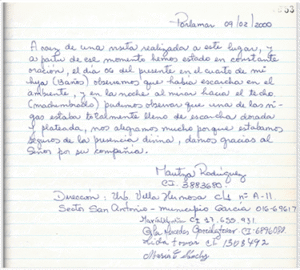 Porlamar 09/02/2000
A raiz de una visita realizada a este lugar, y
a partir de ese momento hemos estado en constante
oración, el dia 06 del presente en el cuarto de mi
hija (Baño) observamos que habia escarcha en el
ambiente, y en la noche al mirar hacia el techo.
(machembrado) pudimos observar que una de las vi-
gas estaba totalmente lleno de escarcha dorada
y plateada, nos alegramos mucho porque estabamos
seguros de la presencia divina, damos gracias al
Señor por su compañia.
Maritza Rodriguez
C.I. 3883680
Dirección: Urb. Villa Hermosa c/s nº A-11
Sector San Antonio - municipio Garcia 016-69617
CI 17.650.931
CI 1303492